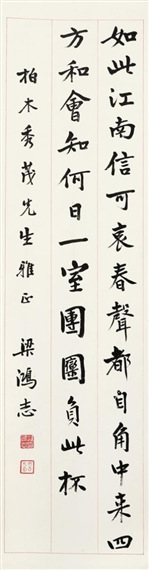 如此江南信可哀春聲都自角中来四
方和會知何日一室團團負此杯
柏木秀茂先生雅正 梁鴻志